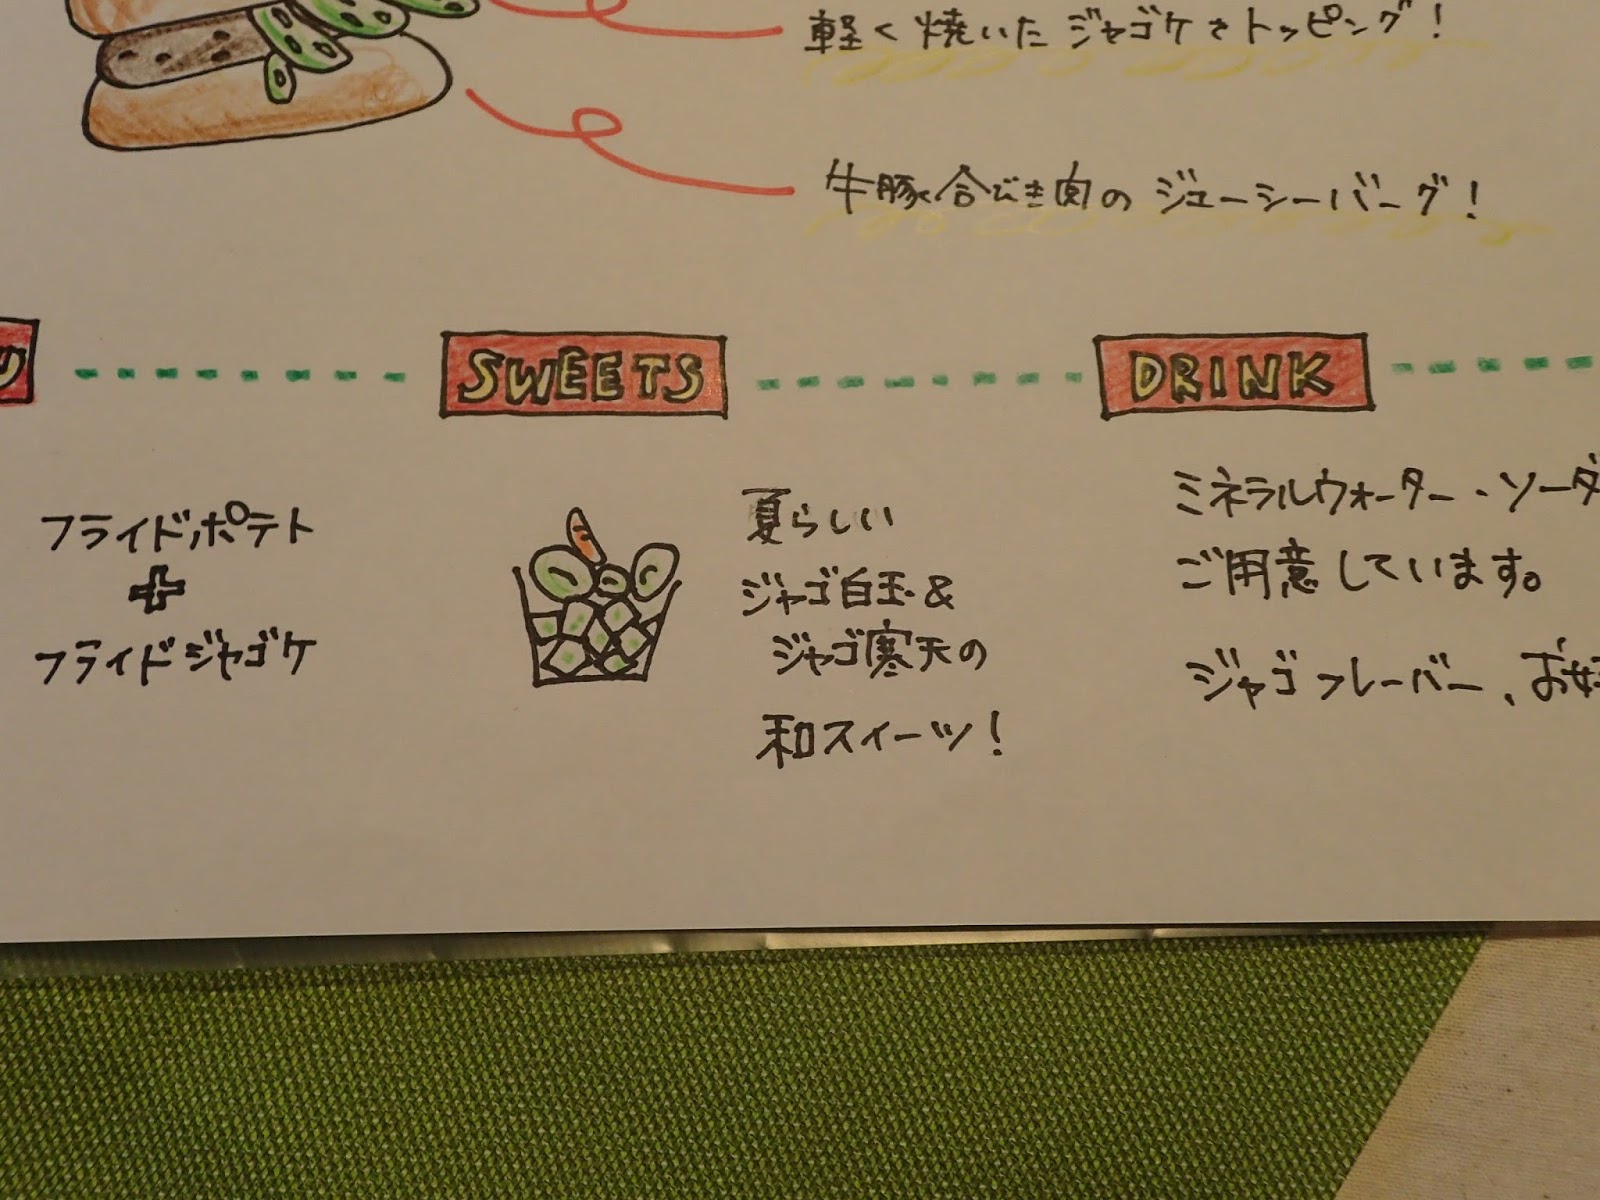 軽く焼いたジャゴケをトッピング！
牛豚合びき肉のジューシーバーグ！
SWEETS
DRINK
フライドポテト
+
フライドジャゴケ
夏らしい
ジャゴ白玉&
ジャゴ寒天の
和スイーツ！
ミネラルウォーター・ソーダ
ご用意しています。
ジャゴフレーバー、お好